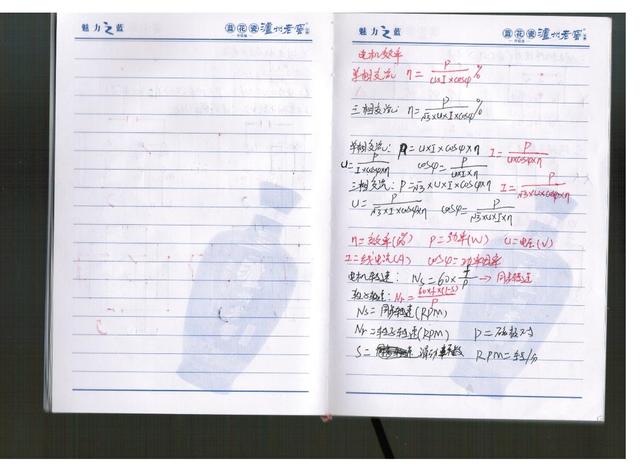 魅力之蓝
百花瓷 泸州老窖
魅力之蓝
百花瓷 泸州老窖
电机效率
单相交流 η=P/(U×I×cosφ)%
三相交流: η=P/(√3×U×I×cosφ)%
单相交流: P=U×I×cosφ×η I=P/(U×cosφ×η)
U=P/(I×cosφ×η) cosφ=P/(U×I×η)
三相交流: P=√3×U×I×cosφ×η I=P/(√3×U×cosφ×η)
U=P/(√3×I×cosφ×η) cosφ=P/(√3×U×I×η)
η=效率(%) P=功率(W) U=电压(V)
I=线电流(A) cosφ=功率因率
电机转速: Ns=60×f/P → 同步转速
转子转速: Nr=60×f×(1-S)/P
Ns=同步转速(RPM)
Nr=转子转速(RPM) P=磁极对
S= 滑动率 RPM=转/分